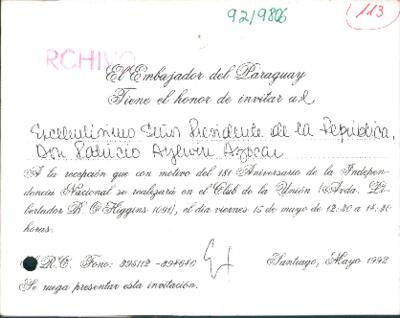 92/9806
113
RCHIVO
El Embajador del Paraguay
Tiene el honor de invitar al
Excelentísimo Señor Presidente de la República,
Don Patricio Aylwin Azocar
A la recepción que con motivo del 181 Aniversario de la Indepen-
dencia Nacional se realizará en el Club de la Unión (Avda. Li-
bertador B. O'Higgins 1091), el día viernes 15 de mayo de 12:30 a 14:30
horas.
R.C. Fono: 396112 - 394640
Santiago, Mayo 1992
Se ruega presentar esta invitación.